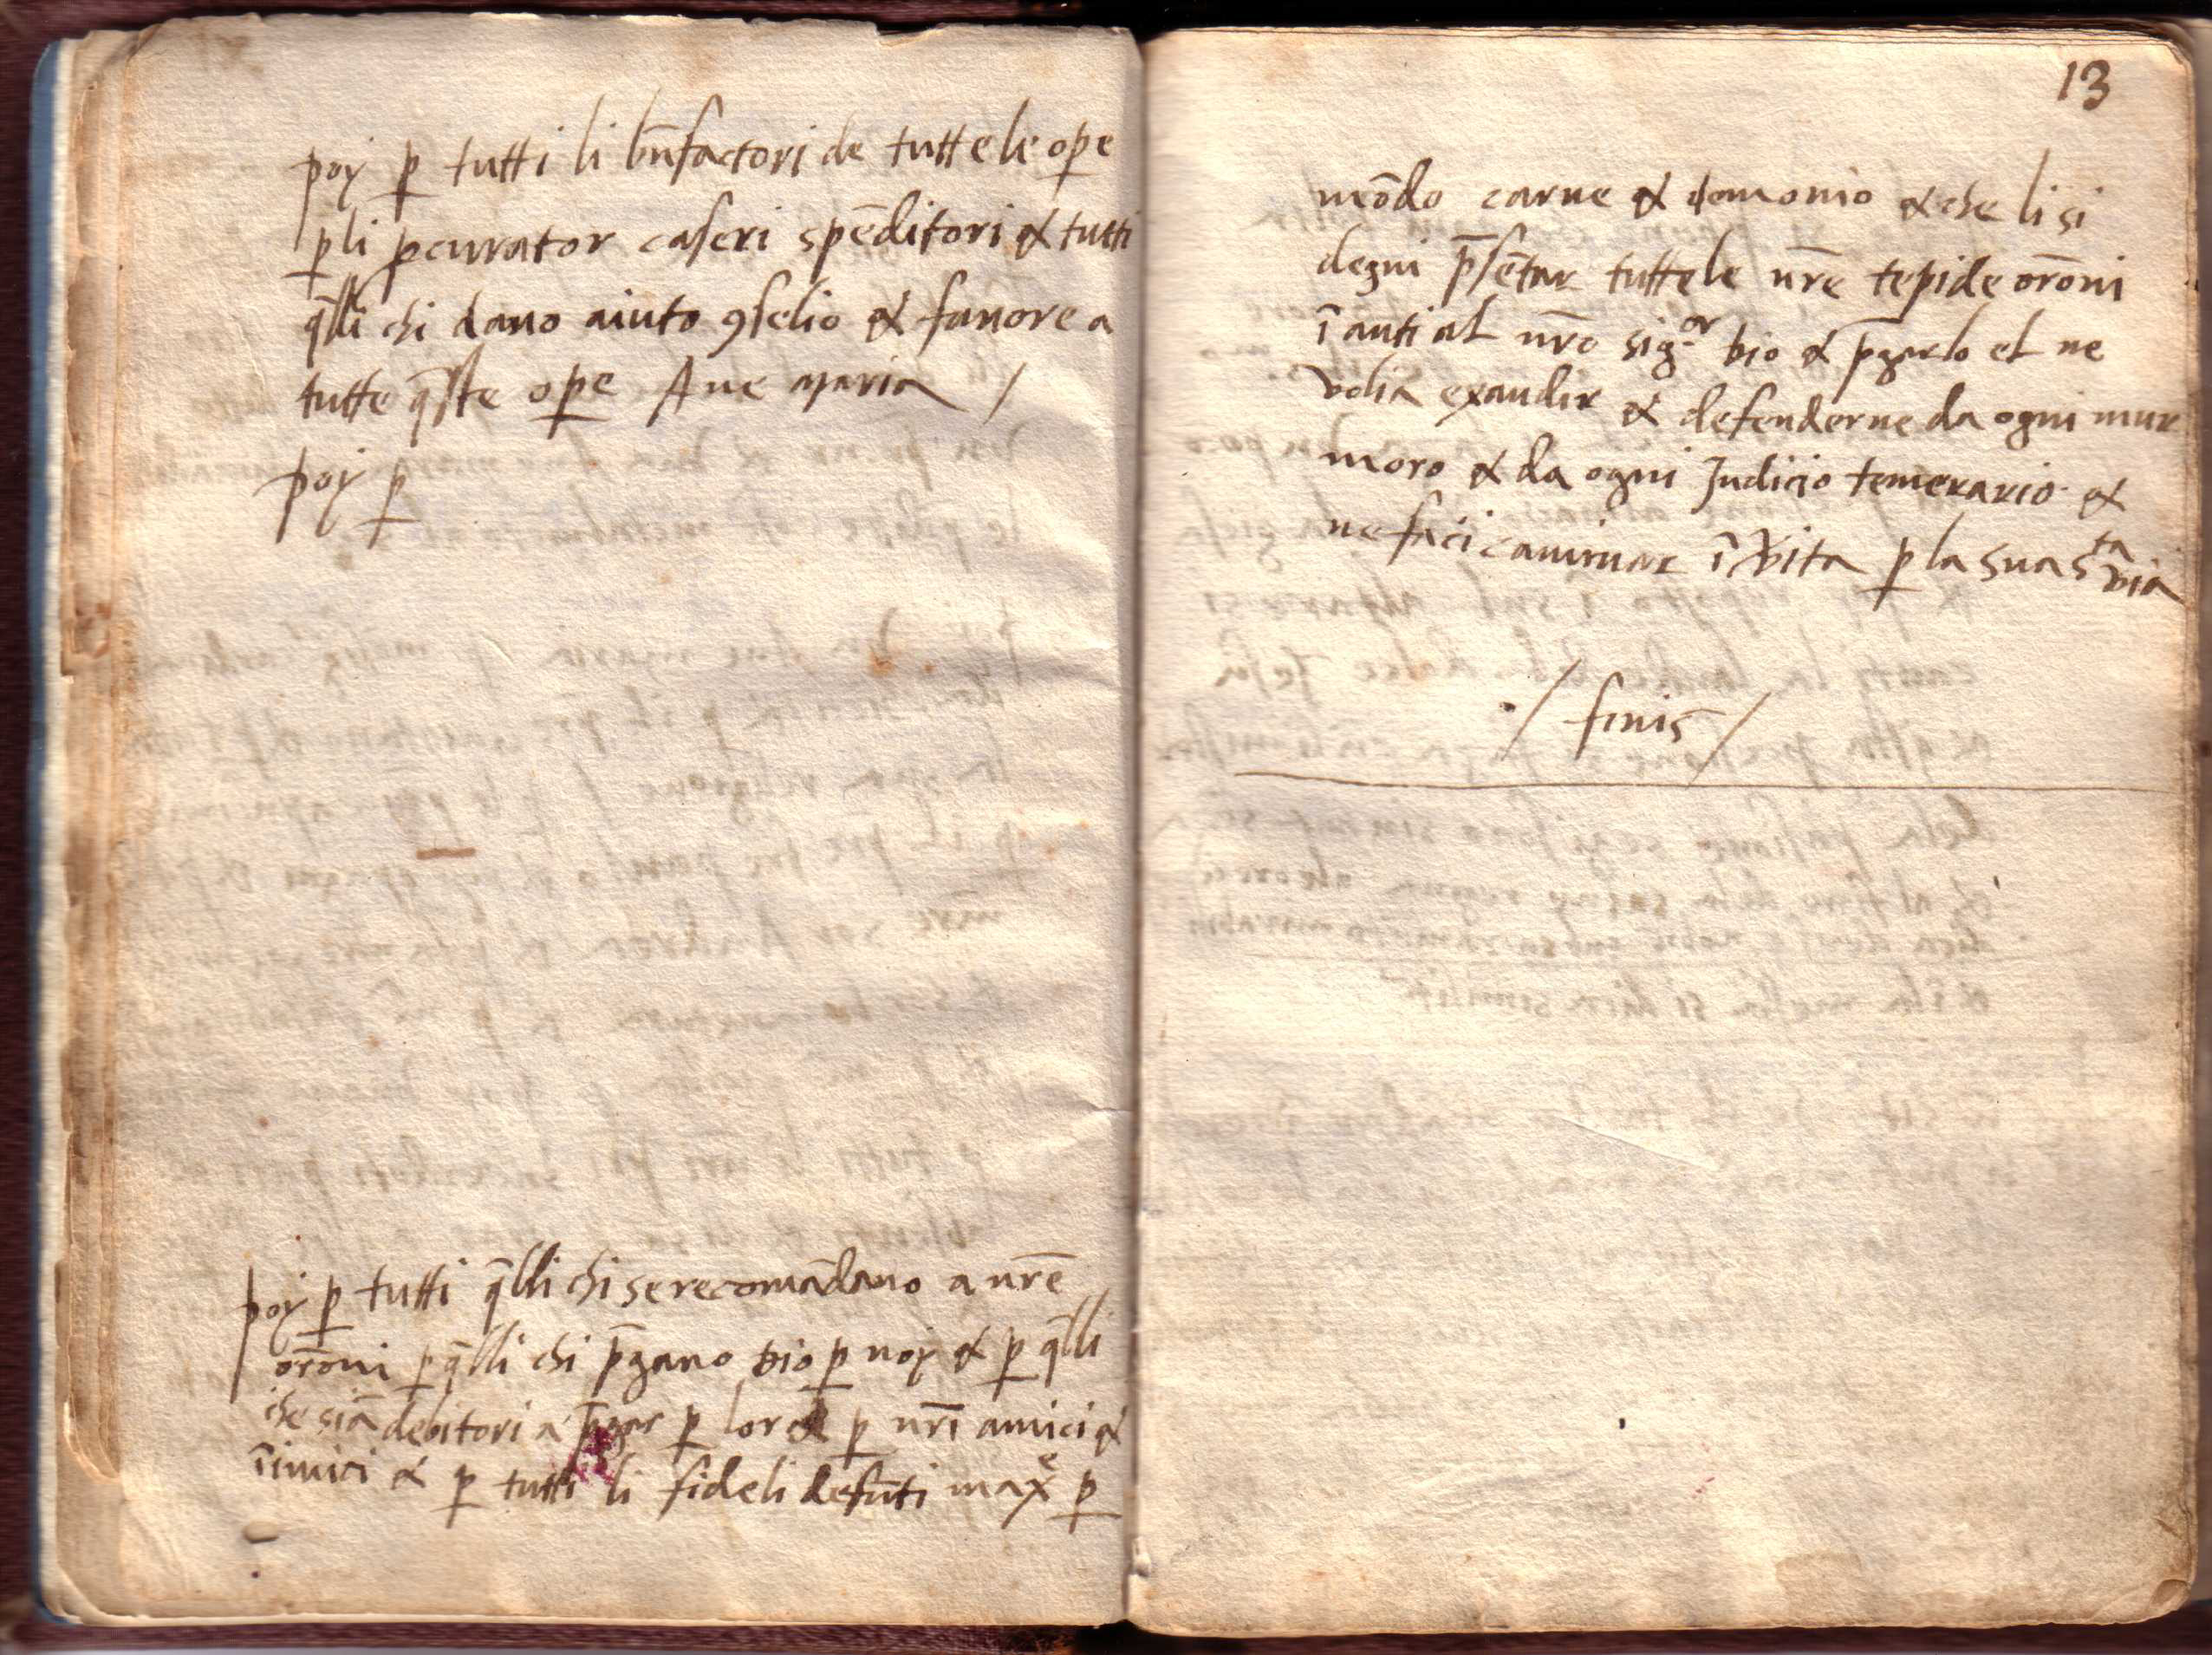 poy p̱ tutti li bn̄factori de tutte le op̱e
p̱ li ꝓcurator caseri spēditori & tutti
q̄lli chi dano aiuto ꝯselio & fauore a
tutte q̄ste op̱e Aue maria /
poy p̱
poy p̱ tutti q̄lli chi se recomādano a nr̄e
orōni p̱ q̄lli chi p̄gano dio p̱ noy & p̱ q̄lli
che siā debitori a p̄gar p̱ lor & p̱ nr̄i amici &
īimici & p̱ tutti li fideli defūti maxᵉ p̱
13
mōdo carne & demonio & che li si
degni p̄sētar tutte le nr̄e tepide orōni
īanti al nr̄o sigᵒʳ dio & p̄garlo el ne
volia exaudir & defenderne da ogni mur
moro & da ogni Judicio temerario &
ne faci caminar ī vita p̱ la sua sᵗᵃ via
./ finis /